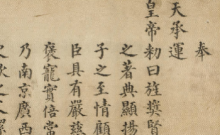 奉
天承運
皇帝勑曰旌獎賢
之著典顯揚
子之至情顧
臣具有嚴慈
褒寵實倍常
乃南京廣西